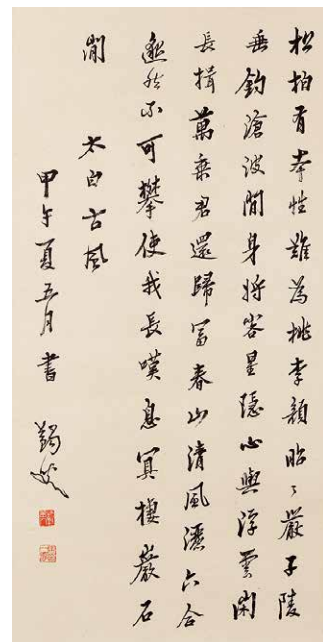 松柏有本性難為桃李顏昭〻嚴子陵
垂釣滄波間身將客星隱心與浮雲閑
長揖萬乘君還歸富春山清風灑六合
邈然不可攀使我長嘆息冥棲巖石
間
太白古風
甲午夏五月書